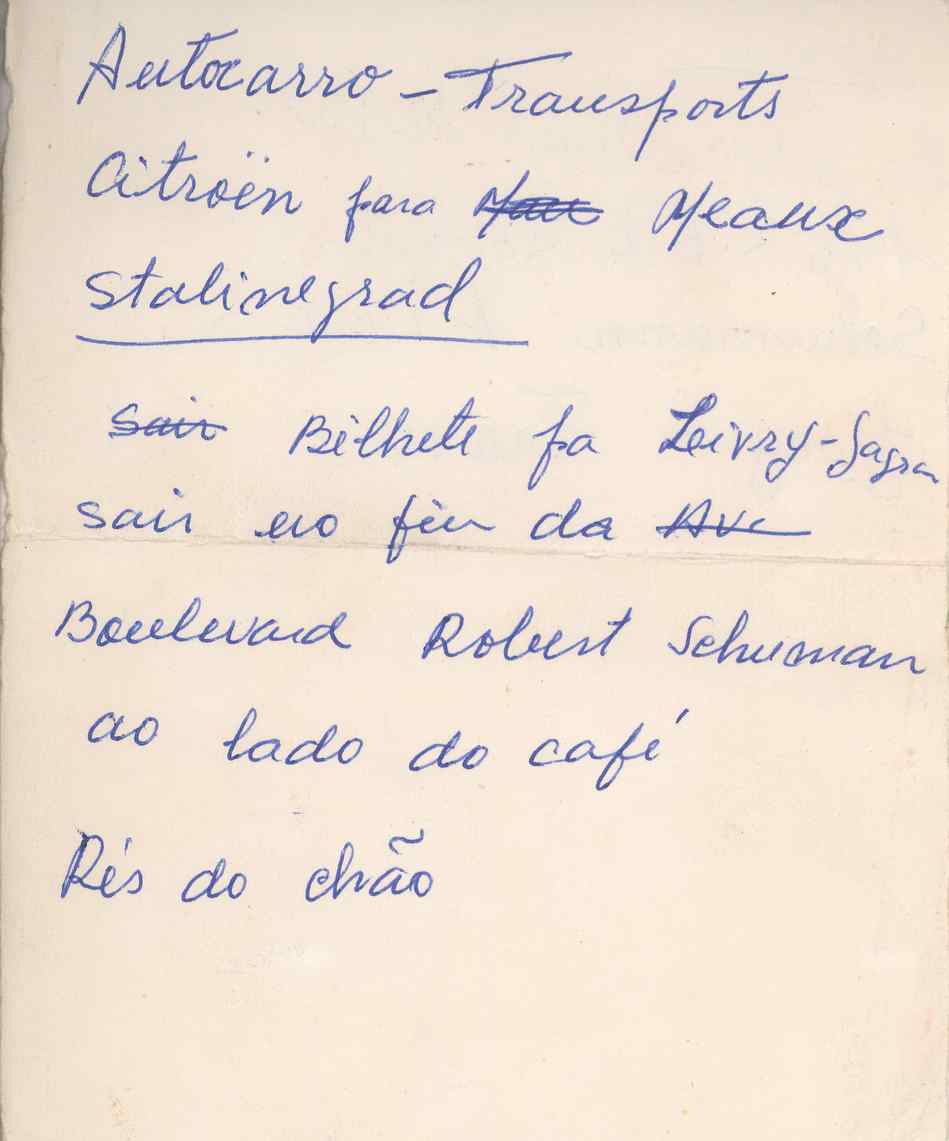 Autocarro – Transports
Citroën para Meaux
Stalinegrad
sair Bilhete pa Leivry-Gagan
sair no fim da Av
Boulevard Robert Schuman
ao lado do café
Rés do chão